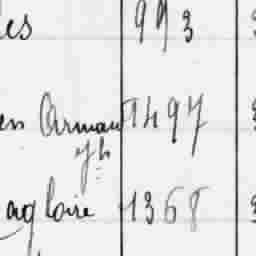 es 993
en Armand 1497
Jh
agloire 1368